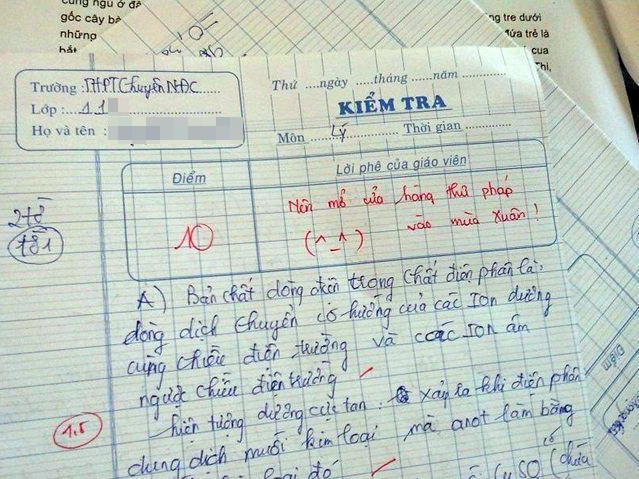 cung ngủ ở đâ
gốc cây bà
những
ng tre dưới
đứa trẻ là
cua
Trường : THPT Chuyên NĐC
Lớp : 11
Họ và tên :
Thứ ....ngày .....tháng ......năm
KIỂM TRA
Môn Lý Thời gian
Điểm
Lời phê của giáo viên
10
Nên mở cửa hàng thư pháp
vào mùa xuân !
(^_^)
181
A) Bản chất dòng điện trong chất điện phân là:
dòng dịch chuyển có hướng của các Ion dương
cùng chiều điện trường và các Ion âm
ngược chiều điện trường
hiện tượng dương cực tan : xảy ra khi điện phân
1.5
dung dịch muối kim loại mà anot làm bằng
loại đó
CuSO (chứa
có
Điểm